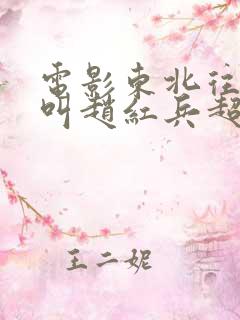 電影東北往
叫趙紅兵超
王二妮